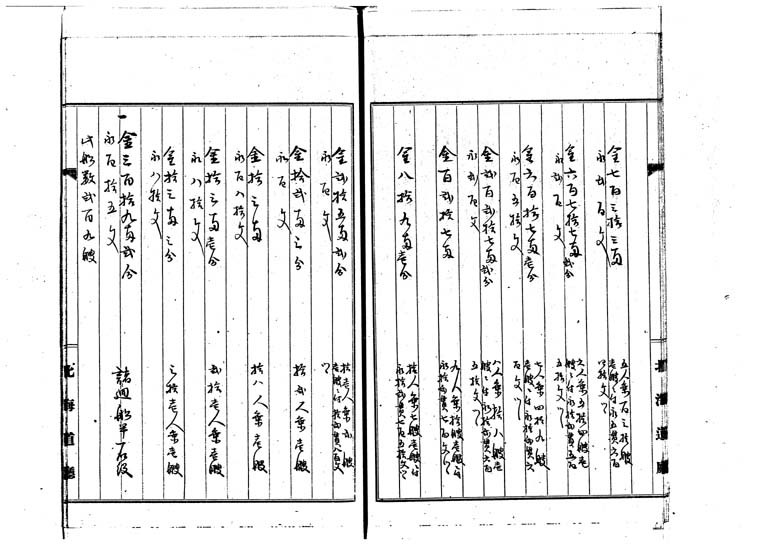 金七百三拾三両
永弐百文
五人乗百三拾艘
壱艘ニ付永五貫六百
四拾文ツヽ
金六百七拾七両弐分
永百文
六人乗五拾四艘壱
艘ニ付永拾弐貫五百
五拾文ツヽ
金六百拾七両壱分
永百五拾文
七人乗四拾九艘
壱艘ニ付永拾弐貫六
百文ツヽ
金弐百弐拾七両弐分
永弐百文
八人乗拾八艘壱
艘ニ付永拾弐貫六百
五拾文ツヽ
金百弐拾七両
九人乗拾艘壱艘ニ付
永拾弐貫七百文ツヽ
金八拾九両壱分
拾人乗七艘壱艘ニ付
永拾弐貫七百五拾文ツヽ
北海道廳
金弐拾五両弐分
永百文
拾壱人乗弐艘
壱艘ニ付拾弐貫八百文
ツヽ
金拾弐両三分
永百文
拾弐人乗壱艘
金拾三両
永百八拾文
拾八人乗壱艘
金拾三両壱分
永八拾文
弐拾壱人乗壱艘
金拾三両三分
永八拾文
三拾壱人乗壱艘
一金三百拾九両弐分
永百拾五文
諸廻船半石役
此船数弐百九艘
北海道廳